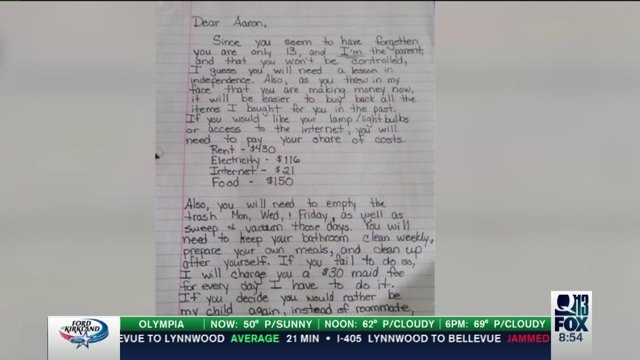 Dear Aaron,
Since you seem to have forgotten
you are only 13, and I'm the parent,
and that you won't be controlled,
I guess you will need a lesson in
independence. Also, as you threw in my
face that you are making money now,
it will be easier to buy back all the
items I bought for you in the past.
If you would like your lamp/lightbulbs
or access to the internet, you will
need to pay your share of costs.
Rent - $430
Electricity - $116
Internet - $21
Food - $150
Also, you will need to empty the
trash Mon, Wed, ! Friday, as well as
sweep & vacuum those days. You will
need to keep your bathroom clean weekly,
prepare your own meals, and clean up
after yourself. If you fail to do so,
I will charge you a $30 maid fee
for every day I have to do it.
If you decide you would rather be
my child again, instead of roommate,
FORD
OF KIRKLAND
OLYMPIA NOW: 50° P/SUNNY NOON: 62° P/CLOUDY 6PM: 69° P/CLOUDY
EVUE TO LYNNWOOD AVERAGE 21 MIN • I-405 LYNNWOOD TO BELLEVUE JAMMED
Q13
FOX
8:54